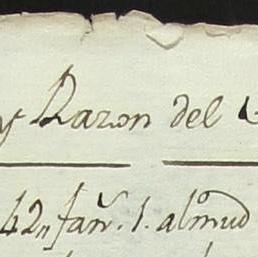 y Razon del
42,, fañ. 1. almud